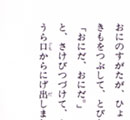 おにのすがたが、ひょ
きもをつぶして、とび
「おにだ、おにだ。」
と、さけびつづけて、
うら口からにげ出しま